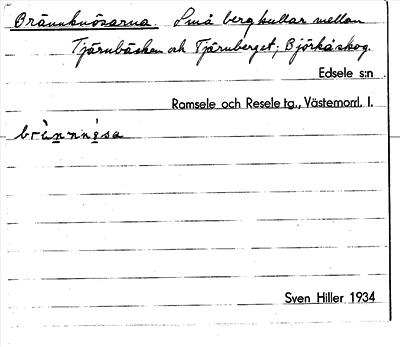 Brännknösarna. Små berg kullar mellan
Tjärnbäcken och Tjärnberget; Björkå skog.
Edsele s:n
Ramsele och Resele tg., Västernorrl. l.
brä̀nnnǝ̍sa
Sven Hiller 1934